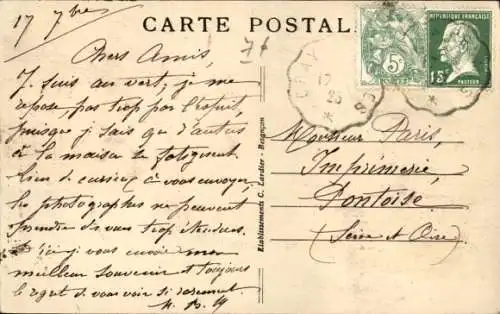 CARTE POSTALE
17 7bre
Chers Amis,
Je suis au vert, je me
repose, pas trop par l'esprit,
puisque je sais que d'autres
à la maison se fatiguent.
Rien de curieux à vous envoyer,
les photographes ne peuvent
prendre des vues trop étendues.
je vous envoie mon
meilleur souvenir et toujours
le regret de vous voir si rarement.
Etablissements C. Lardier - Besançon
5c
REPUBLIQUE FRANÇAISE
15c
PASTEUR
17
25
Monsieur Paris,
Imprimerie,
Pontoise
(Seine et Oise)